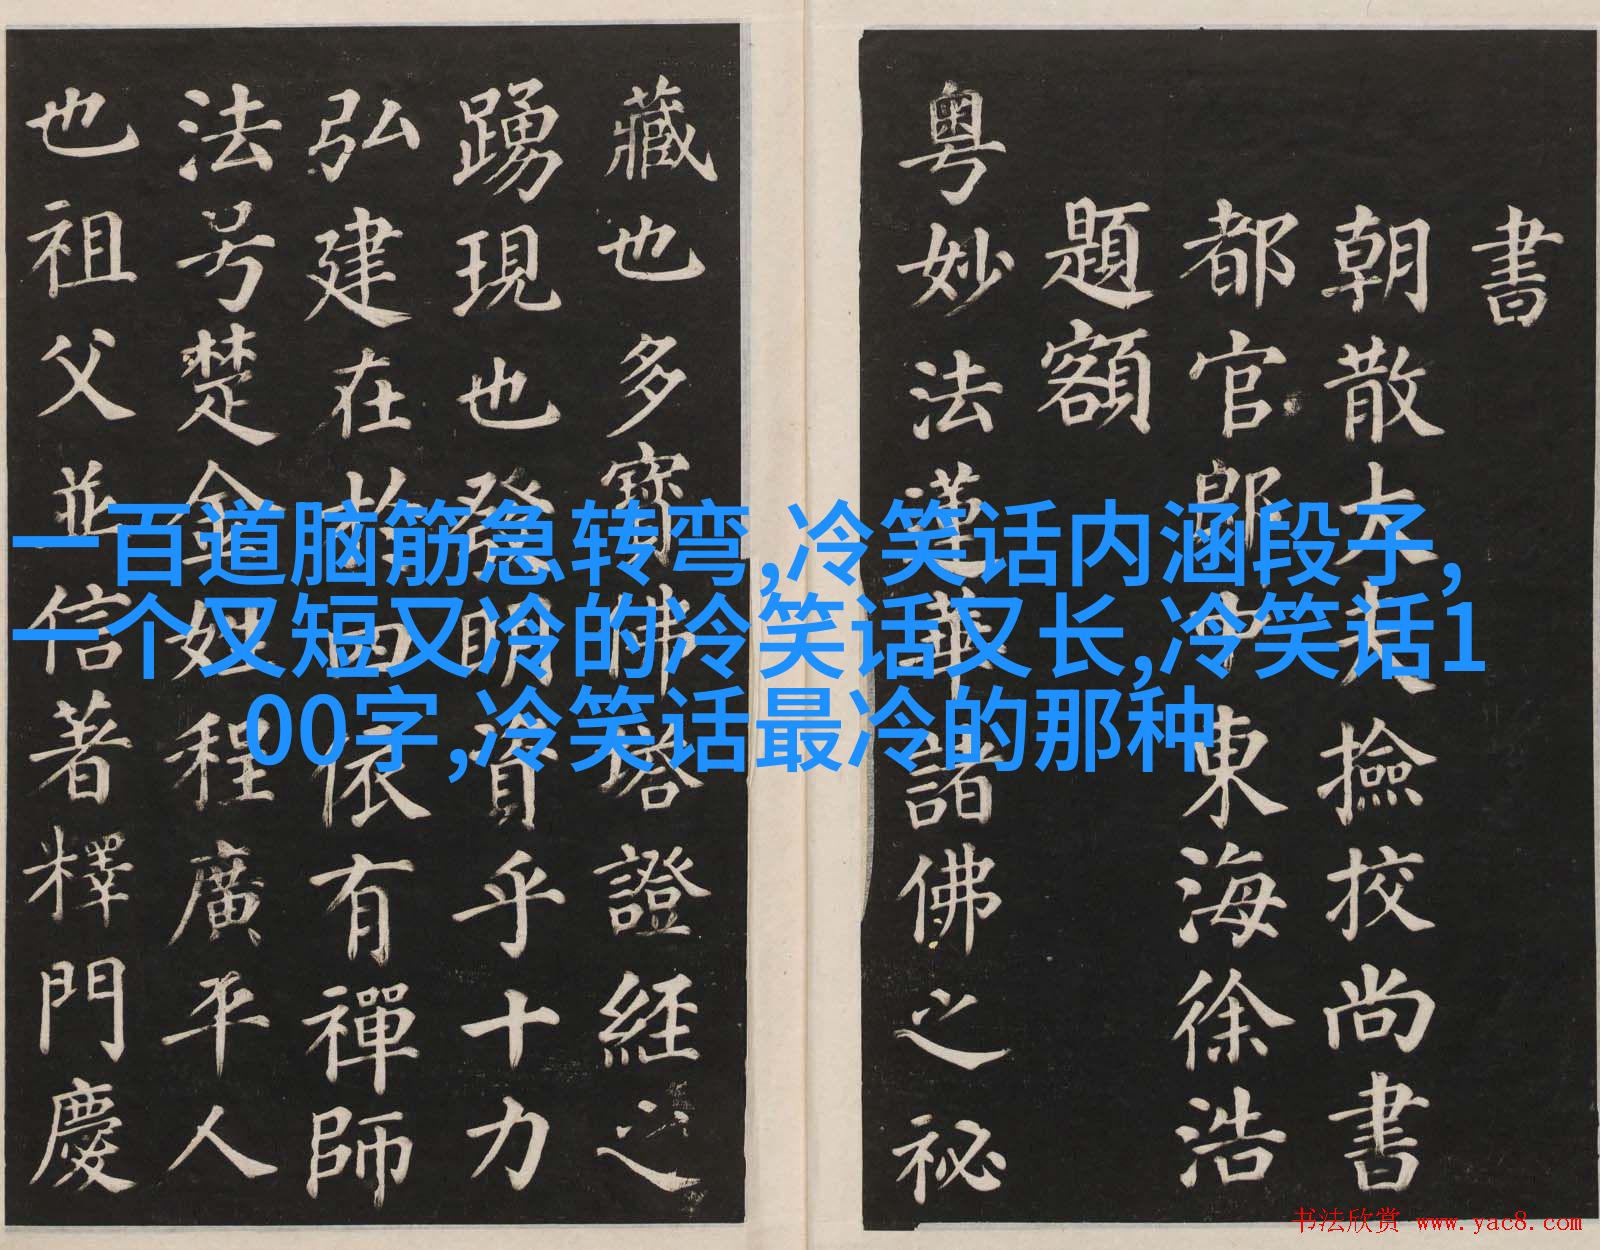 書
朝散大夫撿挍尚書
都官郎中東海徐浩
題額
粵妙法蓮華諸佛之祕
藏也多寶佛塔證經之
踴現也發明資乎十力
弘建在於四依有禪師
法号楚金姓程廣平人
也祖父並信著釋門慶
一百道脑筋急转弯,冷笑话内涵段子,
一个又短又冷的冷笑话又长,冷笑话1
00字,冷笑话最冷的那种
书法欣赏 www.yac8.com